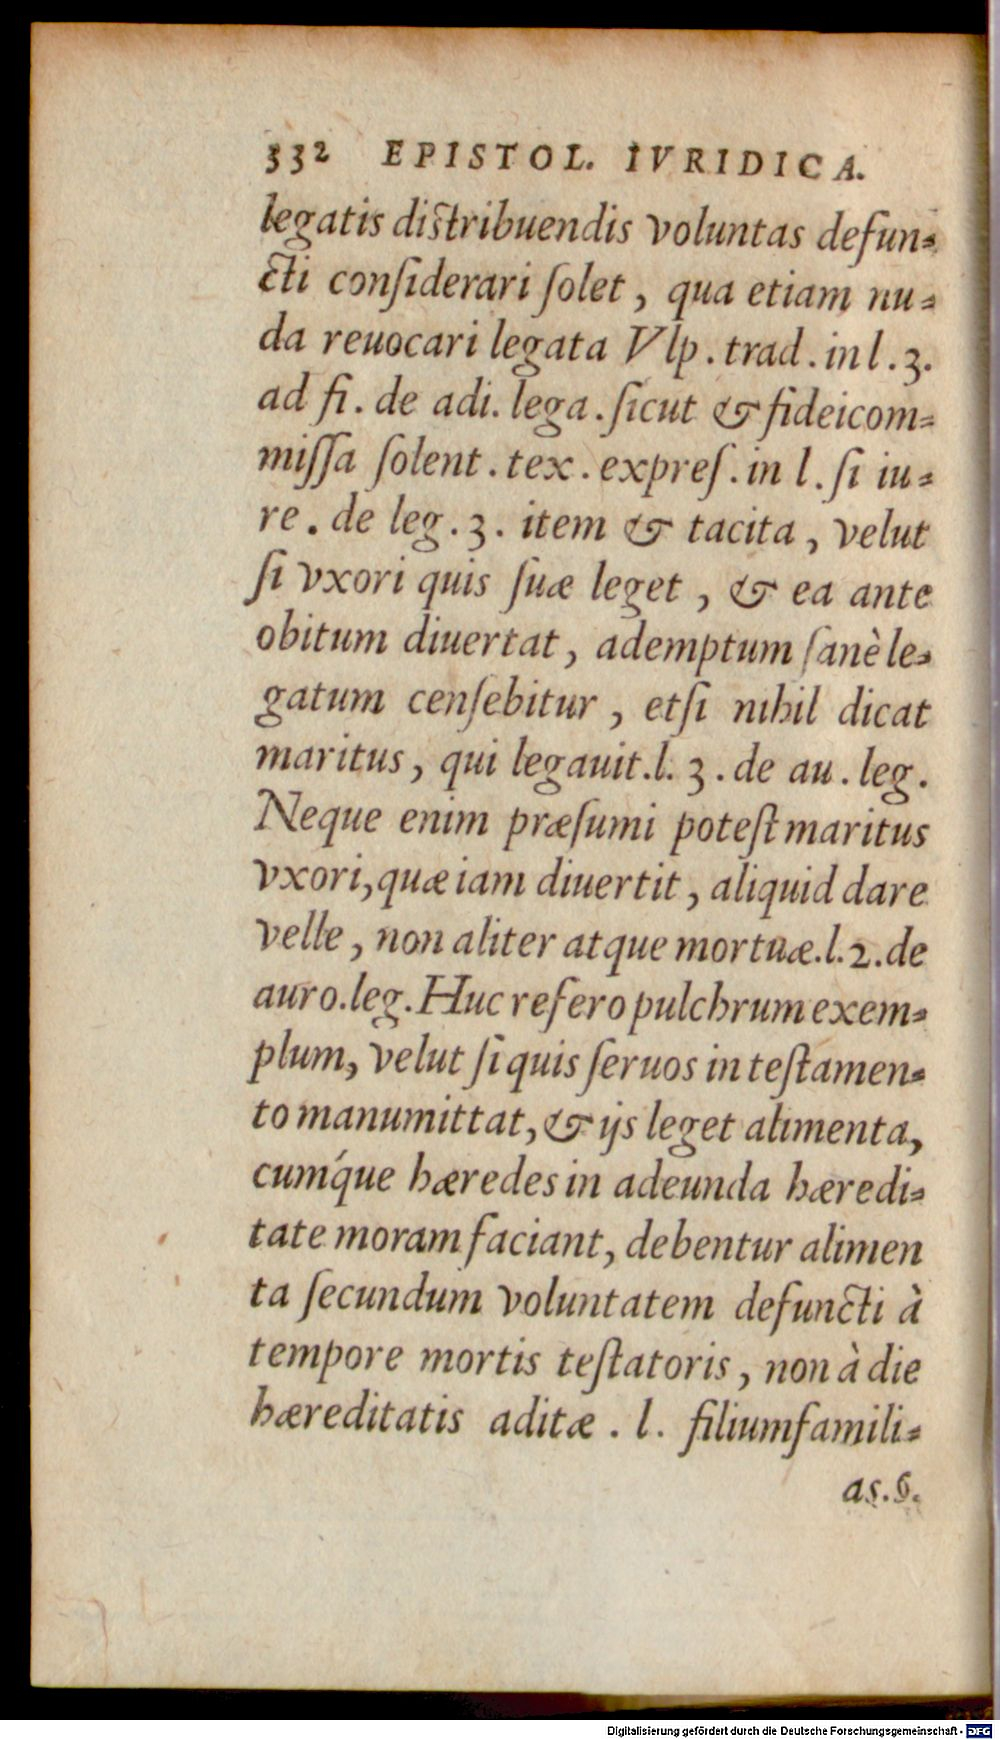 332 EPISTOL. IVRIDICA.
legatis distribuendis voluntas defun-
cti conſiderari ſolet, qua etiam nu-
da reuocari legata Vlp. trad. in l. 3.
ad fi. de adi. lega. ſicut & fideicom-
miſſa ſolent. tex. expreſ. in l. ſi iu-
re. de leg. 3. item & tacita, velut
ſi vxori quis ſuæ leget, & ea ante
obitum diuertat, ademptum ſanè le-
gatum cenſebitur, etſi nihil dicat
maritus, qui legauit. l. 3. de au. leg.
Neque enim præſumi poteſt maritus
vxori, quæ iam diuertit, aliquid dare
velle, non aliter atque mortuæ. l. 2. de
auro. leg. Huc refero pulchrum exem-
plum, velut ſi quis ſeruos in teſtamen-
to manumittat, & ijs leget alimenta,
cumq́ue hæredes in adeunda hæredi-
tate moram faciant, debentur alimen
ta ſecundum voluntatem defuncti à
tempore mortis teſtatoris, non à die
hæreditatis aditæ. l. filiumfamili-
as. 6.
Digitalisierung gefördert durch die Deutsche Forschungsgemeinschaft - DFG